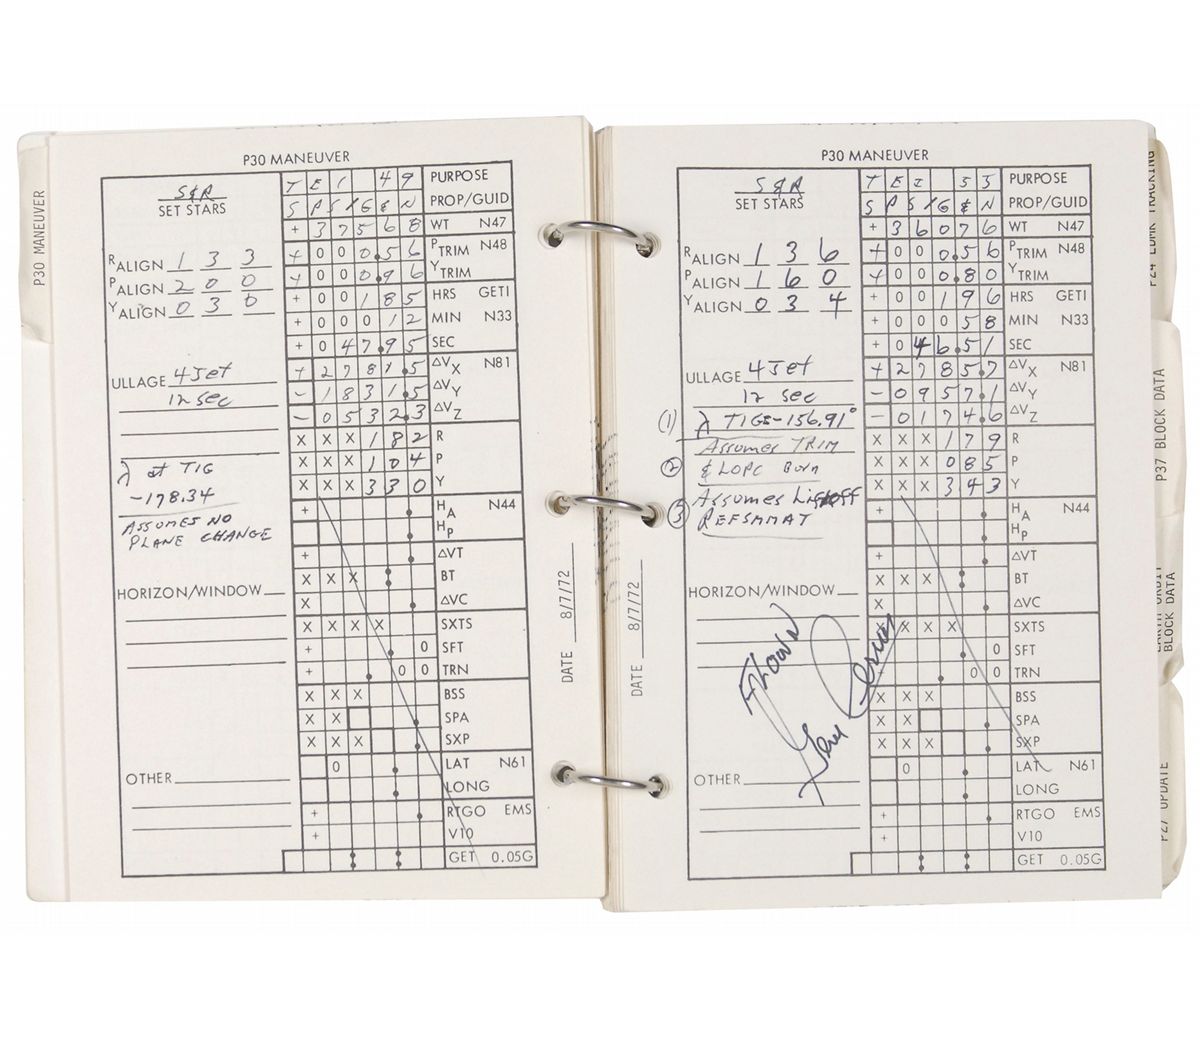 P30 MANEUVER
P30 MANEUVER
S&R
SET STARS
T E I 4 9 PURPOSE
S P S / G & N PROP/GUID
+ 3 7 5 6 8 WT N47
R ALIGN 1 3 3
P ALIGN 2 0 0
Y ALIGN 0 3 0
+ 0 0 0.5 6 P TRIM N48
+ 0 0 0.9 6 Y TRIM
+ 0 0 1 8 5 HRS GETI
+ 0 0 0 1 2 MIN N33
+ 0 4 7.9 5 SEC
ULLAGE 4 Jet
12 sec
+ 2 7 8 1.5 ΔVX N81
- 1 8 3 1.5 ΔVY
- 0 5 3 2.3 ΔVZ
X X X 1 8 2 R
X X X 1 0 4 P
X X X 3 3 0 Y
λ at TIG
-178.34
ASSUMES NO
PLANE CHANGE
+ HA N44
HP
+ ΔVT
X X X BT
X ΔVC
HORIZON/WINDOW
X X X X SXTS
+ 0 SFT
+ 0 0 TRN
X X X BSS
X X SPA
X X X SXP
OTHER
0 LAT N61
LONG
+ RTGO EMS
+ V10
GET 0.05G
DATE 8/7/72
P30 MANEUVER
S&R
SET STARS
T E I 5 3 PURPOSE
S P S / G & N PROP/GUID
+ 3 6 0 7 6 WT N47
R ALIGN 1 3 6
P ALIGN 1 6 0
Y ALIGN 0 3 4
+ 0 0 0.5 6 P TRIM N48
+ 0 0 0.8 0 Y TRIM
+ 0 0 1 9 6 HRS GETI
+ 0 0 0 5 8 MIN N33
+ 0 4 6.5 1 SEC
ULLAGE 4 Jet
12 sec
+ 2 7 8 5.7 ΔVX N81
- 0 9 5 7.1 ΔVY
- 0 1 7 4.6 ΔVZ
X X X 1 7 9 R
X X X 0 8 5 P
X X X 3 4 3 Y
(1) λ TIG=-156.91°
Assumes TRIM
(2) & LOPC Burn
(3) Assumes Liftoff
REFSMMAT
+ HA N44
HP
+ ΔVT
X X X BT
X ΔVC
HORIZON/WINDOW
X X X X SXTS
0 SFT
+ 0 0 TRN
X X X BSS
X X SPA
X X X SXP
FLOWN
Gene Cernan
OTHER
0 LAT N61
LONG
+ RTGO EMS
+ V10
GET 0.05G
DATE 8/7/72
P24 LDMK TRACKING
P37 BLOCK DATA
EARTH ORBIT
BLOCK DATA
P27 UPDATE